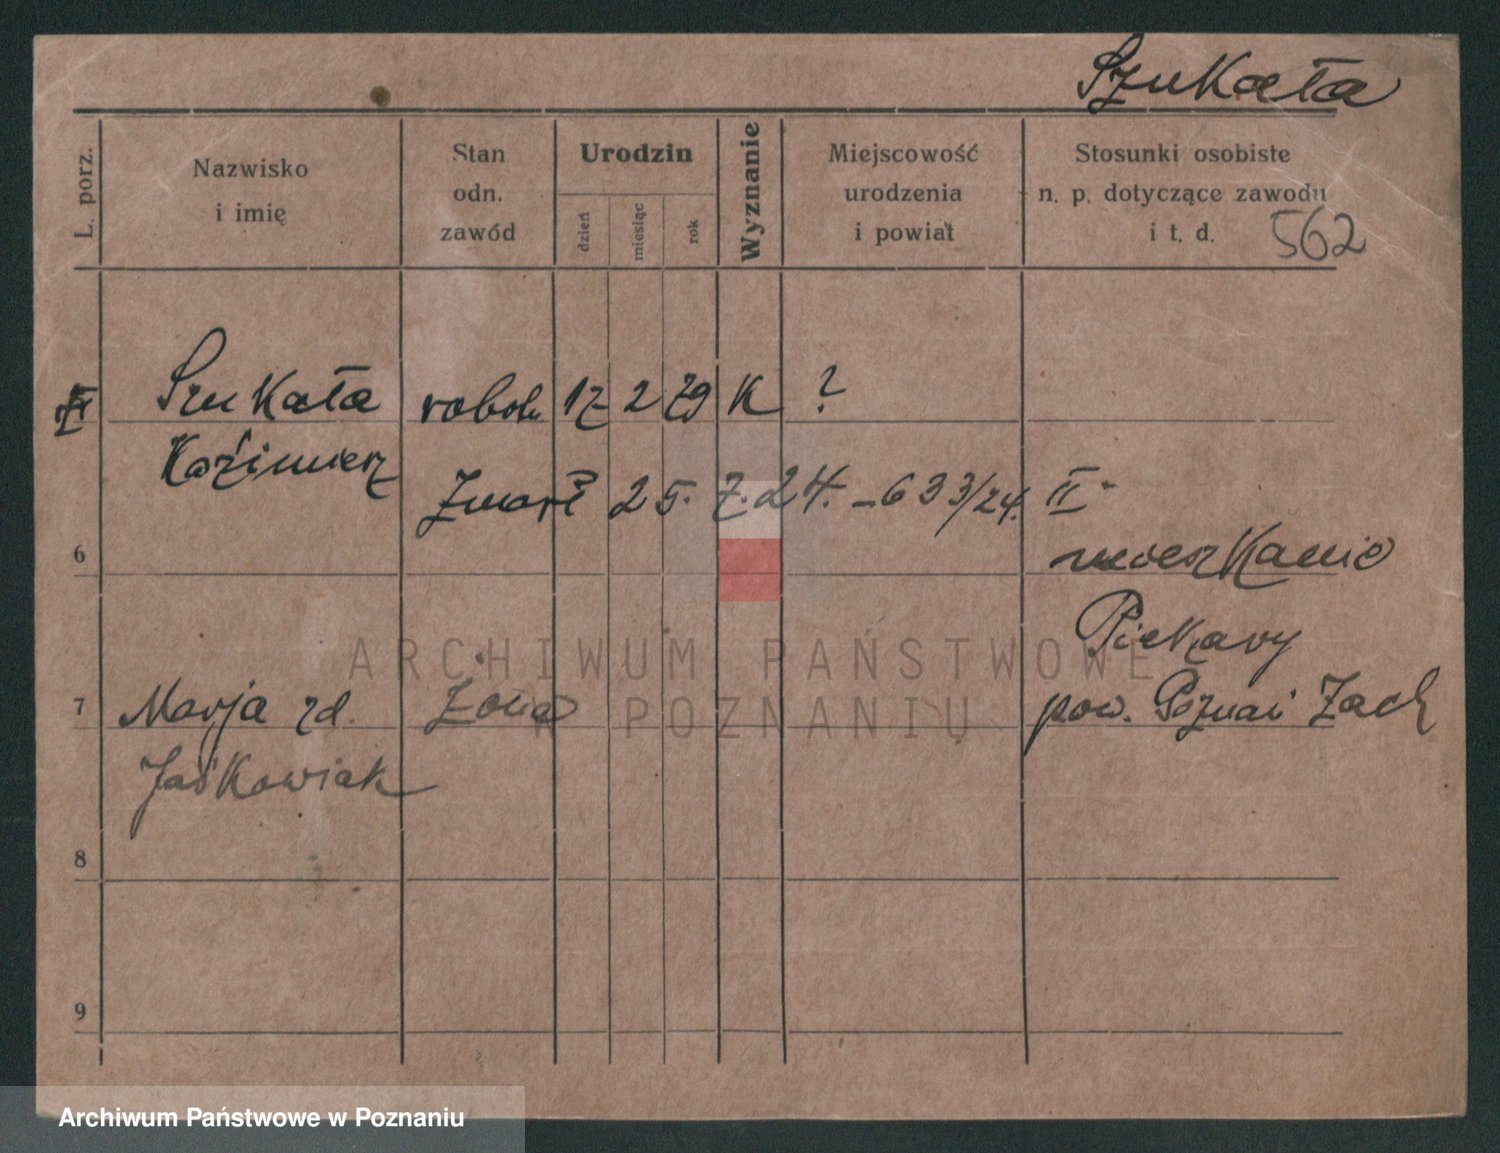 Szukała
L. porz.
Nazwisko
i imię
Stan
odn.
zawód
Urodzin
dzień
miesiąc
rok
Wyznanie
Miejscowość
urodzenia
i powiat
Stosunki osobiste
n. p. dotyczące zawodu
i t. d.
562
Szukała robotn 17 2 79 K ?
Kaźimierz
Zmarł 25. 7. 24. - 633/24. II
6
mieszkanie
Piekary
7 Marja zd. żona pow. Poznań Zach
Jaśkowiak
8
9
ARCHIWUM PAŃSTWOWE
W POZNANIU
Archiwum Państwowe w Poznaniu